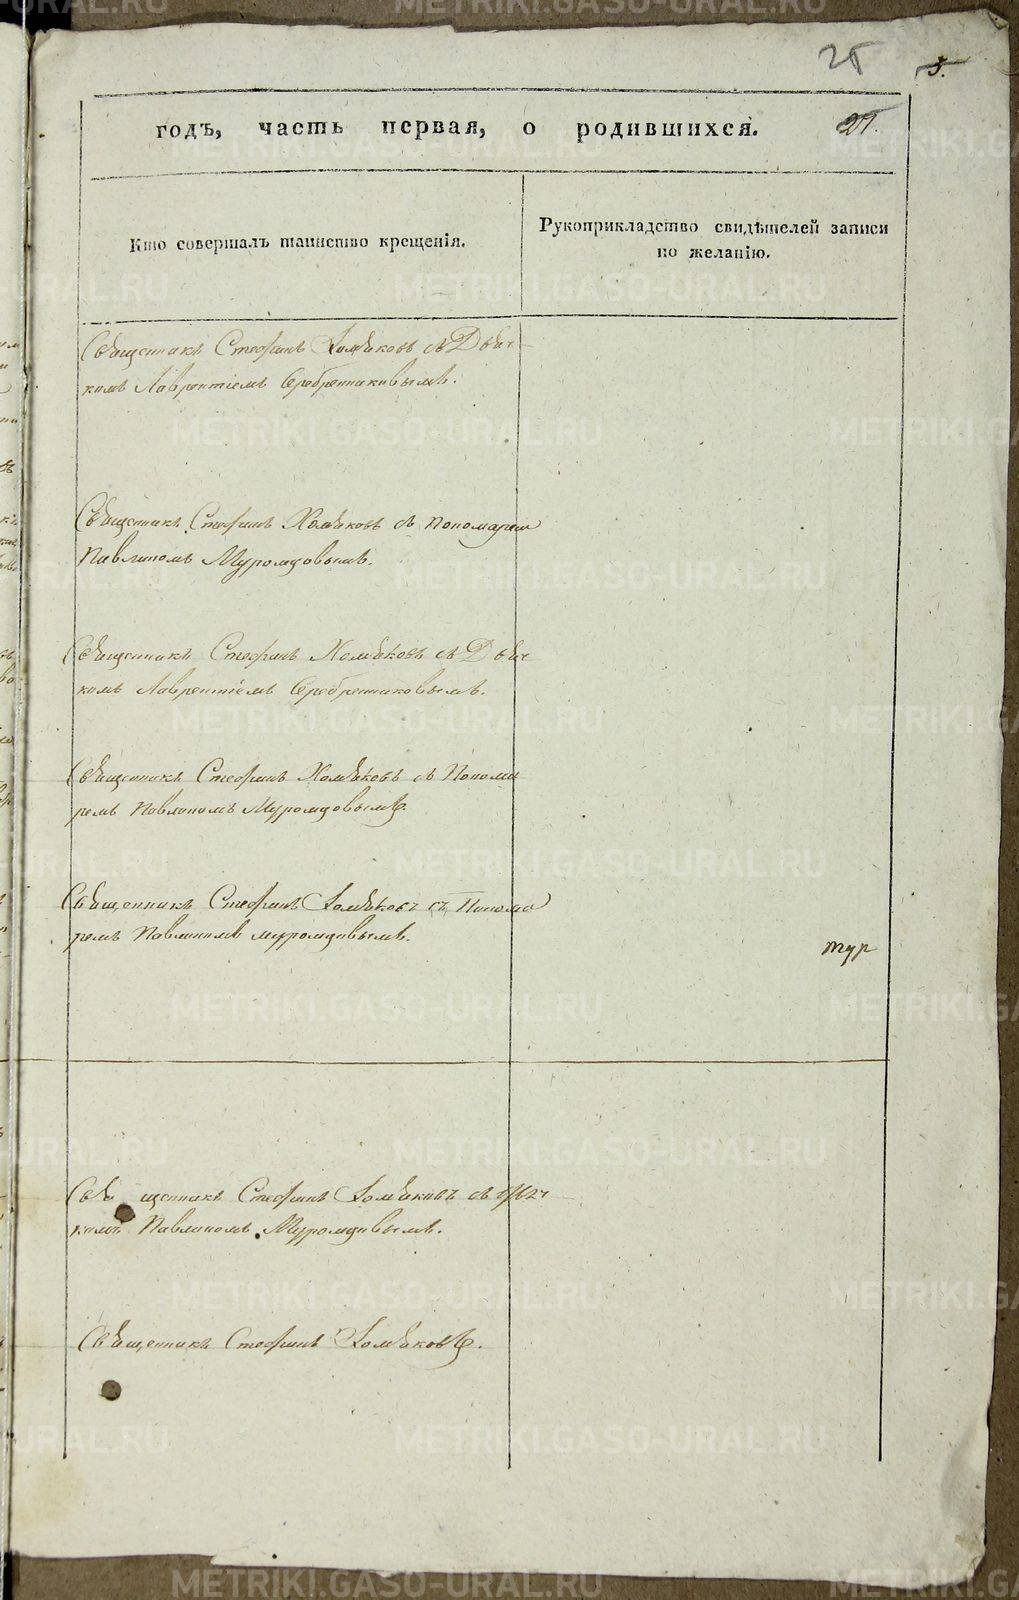 25
3.
годъ, часть первая, о родившихся.
27.
Кто совершалъ таинство крещенія.
Рукоприкладство свидѣтелей записи
по желанію.
Священникъ Стефанъ Хомяковъ съ Дьяч-
комъ Лаврентіемъ Серебренниковымъ.
Священникъ Стефанъ Хомяковъ съ пономарем
Павлиномъ Муромцовымъ.
Священникъ Стефанъ Хомяковъ съ Дьяч-
комъ Лаврентіемъ Серебренниковымъ.
Священникъ Стефанъ Хомяковъ съ Понома
ремъ Павлиномъ Муромцовымъ.
Священникъ Стефанъ Хомяковъ съ Понома
ремъ Павлиномъ муромцовымъ.
тур
Священникъ Стефанъ Хомяковъ съ дьяч
комъ Павлиномъ Муромцовымъ.
Священникъ Стефанъ Хомяковъ.
METRIKI.GASO-URAL.RU